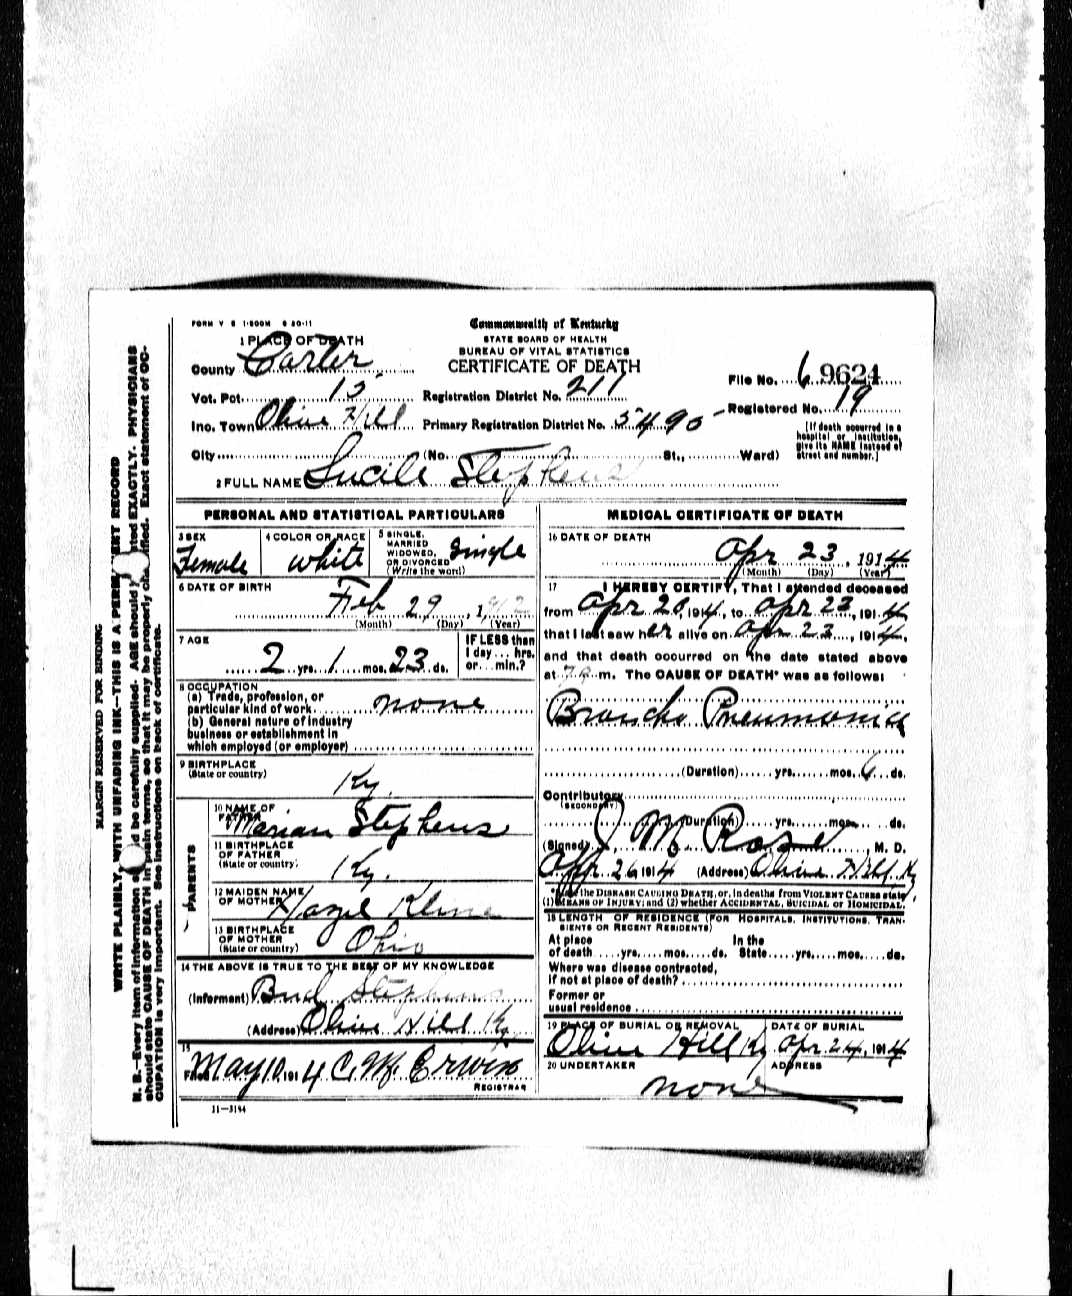 FORM V S 1-500M 6 20-11
Commonwealth of Kentucky
STATE BOARD OF HEALTH
BUREAU OF VITAL STATISTICS
CERTIFICATE OF DEATH
1 PLACE OF DEATH
County Carter
Vot. Pct. 15
Inc. Town Olive Hill
City (No. St., Ward)
Registration District No. 211
Primary Registration District No. 5490
File No. 9624
Registered No. 19
[If death occurred in a
hospital or institution,
give its NAME instead of
street and number.]
2 FULL NAME Lucile Stephens
PERSONAL AND STATISTICAL PARTICULARS
3 SEX
Female
4 COLOR OR RACE
white
5 SINGLE,
MARRIED
WIDOWED,
OR DIVORCED
(Write the word)
Single
6 DATE OF BIRTH
Feb 29, 1912
(Month) (Day) (Year)
7 AGE
2 yrs. 1 mos. 23 ds.
IF LESS than
1 day... hrs.
or... min.?
8 OCCUPATION
(a) Trade, profession, or
particular kind of work none
(b) General nature of industry
business or establishment in
which employed (or employer)
9 BIRTHPLACE
(State or country)
Ky.
PARENTS
10 NAME OF
FATHER
Marian Stephens
11 BIRTHPLACE
OF FATHER
(State or country)
Ky.
12 MAIDEN NAME
OF MOTHER
Hazel Kline
13 BIRTHPLACE
OF MOTHER
(State or country)
Ohio
14 THE ABOVE IS TRUE TO THE BEST OF MY KNOWLEDGE
(Informant) Bud Stephens
(Address) Olive Hill Ky
15
Filed May 10, 1914 C. M. Erwin
REGISTRAR
11-3184
MEDICAL CERTIFICATE OF DEATH
16 DATE OF DEATH
Apr 23, 1914
(Month) (Day) (Year)
17 I HEREBY CERTIFY, That I attended deceased
from Apr 20, 1914, to Apr 23, 1914
that I last saw her alive on Apr 23, 1914,
and that death occurred on the date stated above
at m. The CAUSE OF DEATH* was as follows:
Broncho Pneumonia
(Duration) yrs. mos. 6 ds.
Contributory
(SECONDARY)
(Duration) yrs. mos. ds.
(Signed) J M Rose, M. D.
Apr 26 1914 (Address) Olive Hill Ky
*State the DISEASE CAUSING DEATH, or, in deaths from VIOLENT CAUSES state
(1) MEANS OF INJURY; and (2) whether ACCIDENTAL, SUICIDAL or HOMICIDAL.
18 LENGTH OF RESIDENCE (FOR HOSPITALS, INSTITUTIONS, TRAN-
SIENTS OR RECENT RESIDENTS)
At place In the
of death yrs. mos. ds. State yrs. mos. ds.
Where was disease contracted,
if not at place of death?
Former or
usual residence
19 PLACE OF BURIAL OR REMOVAL
Olive Hill Ky
DATE OF BURIAL
Apr 24, 1914
20 UNDERTAKER
none
ADDRESS
MARGIN RESERVED FOR BINDING
WRITE PLAINLY, WITH UNFADING INK—THIS IS A PERMANENT RECORD
N. B.—Every item of information should be carefully supplied. AGE should be stated EXACTLY. PHYSICIANS
should state CAUSE OF DEATH in plain terms, so that it may be properly classified. Exact statement of OC-
CUPATION is very important. See instructions on back of certificate.